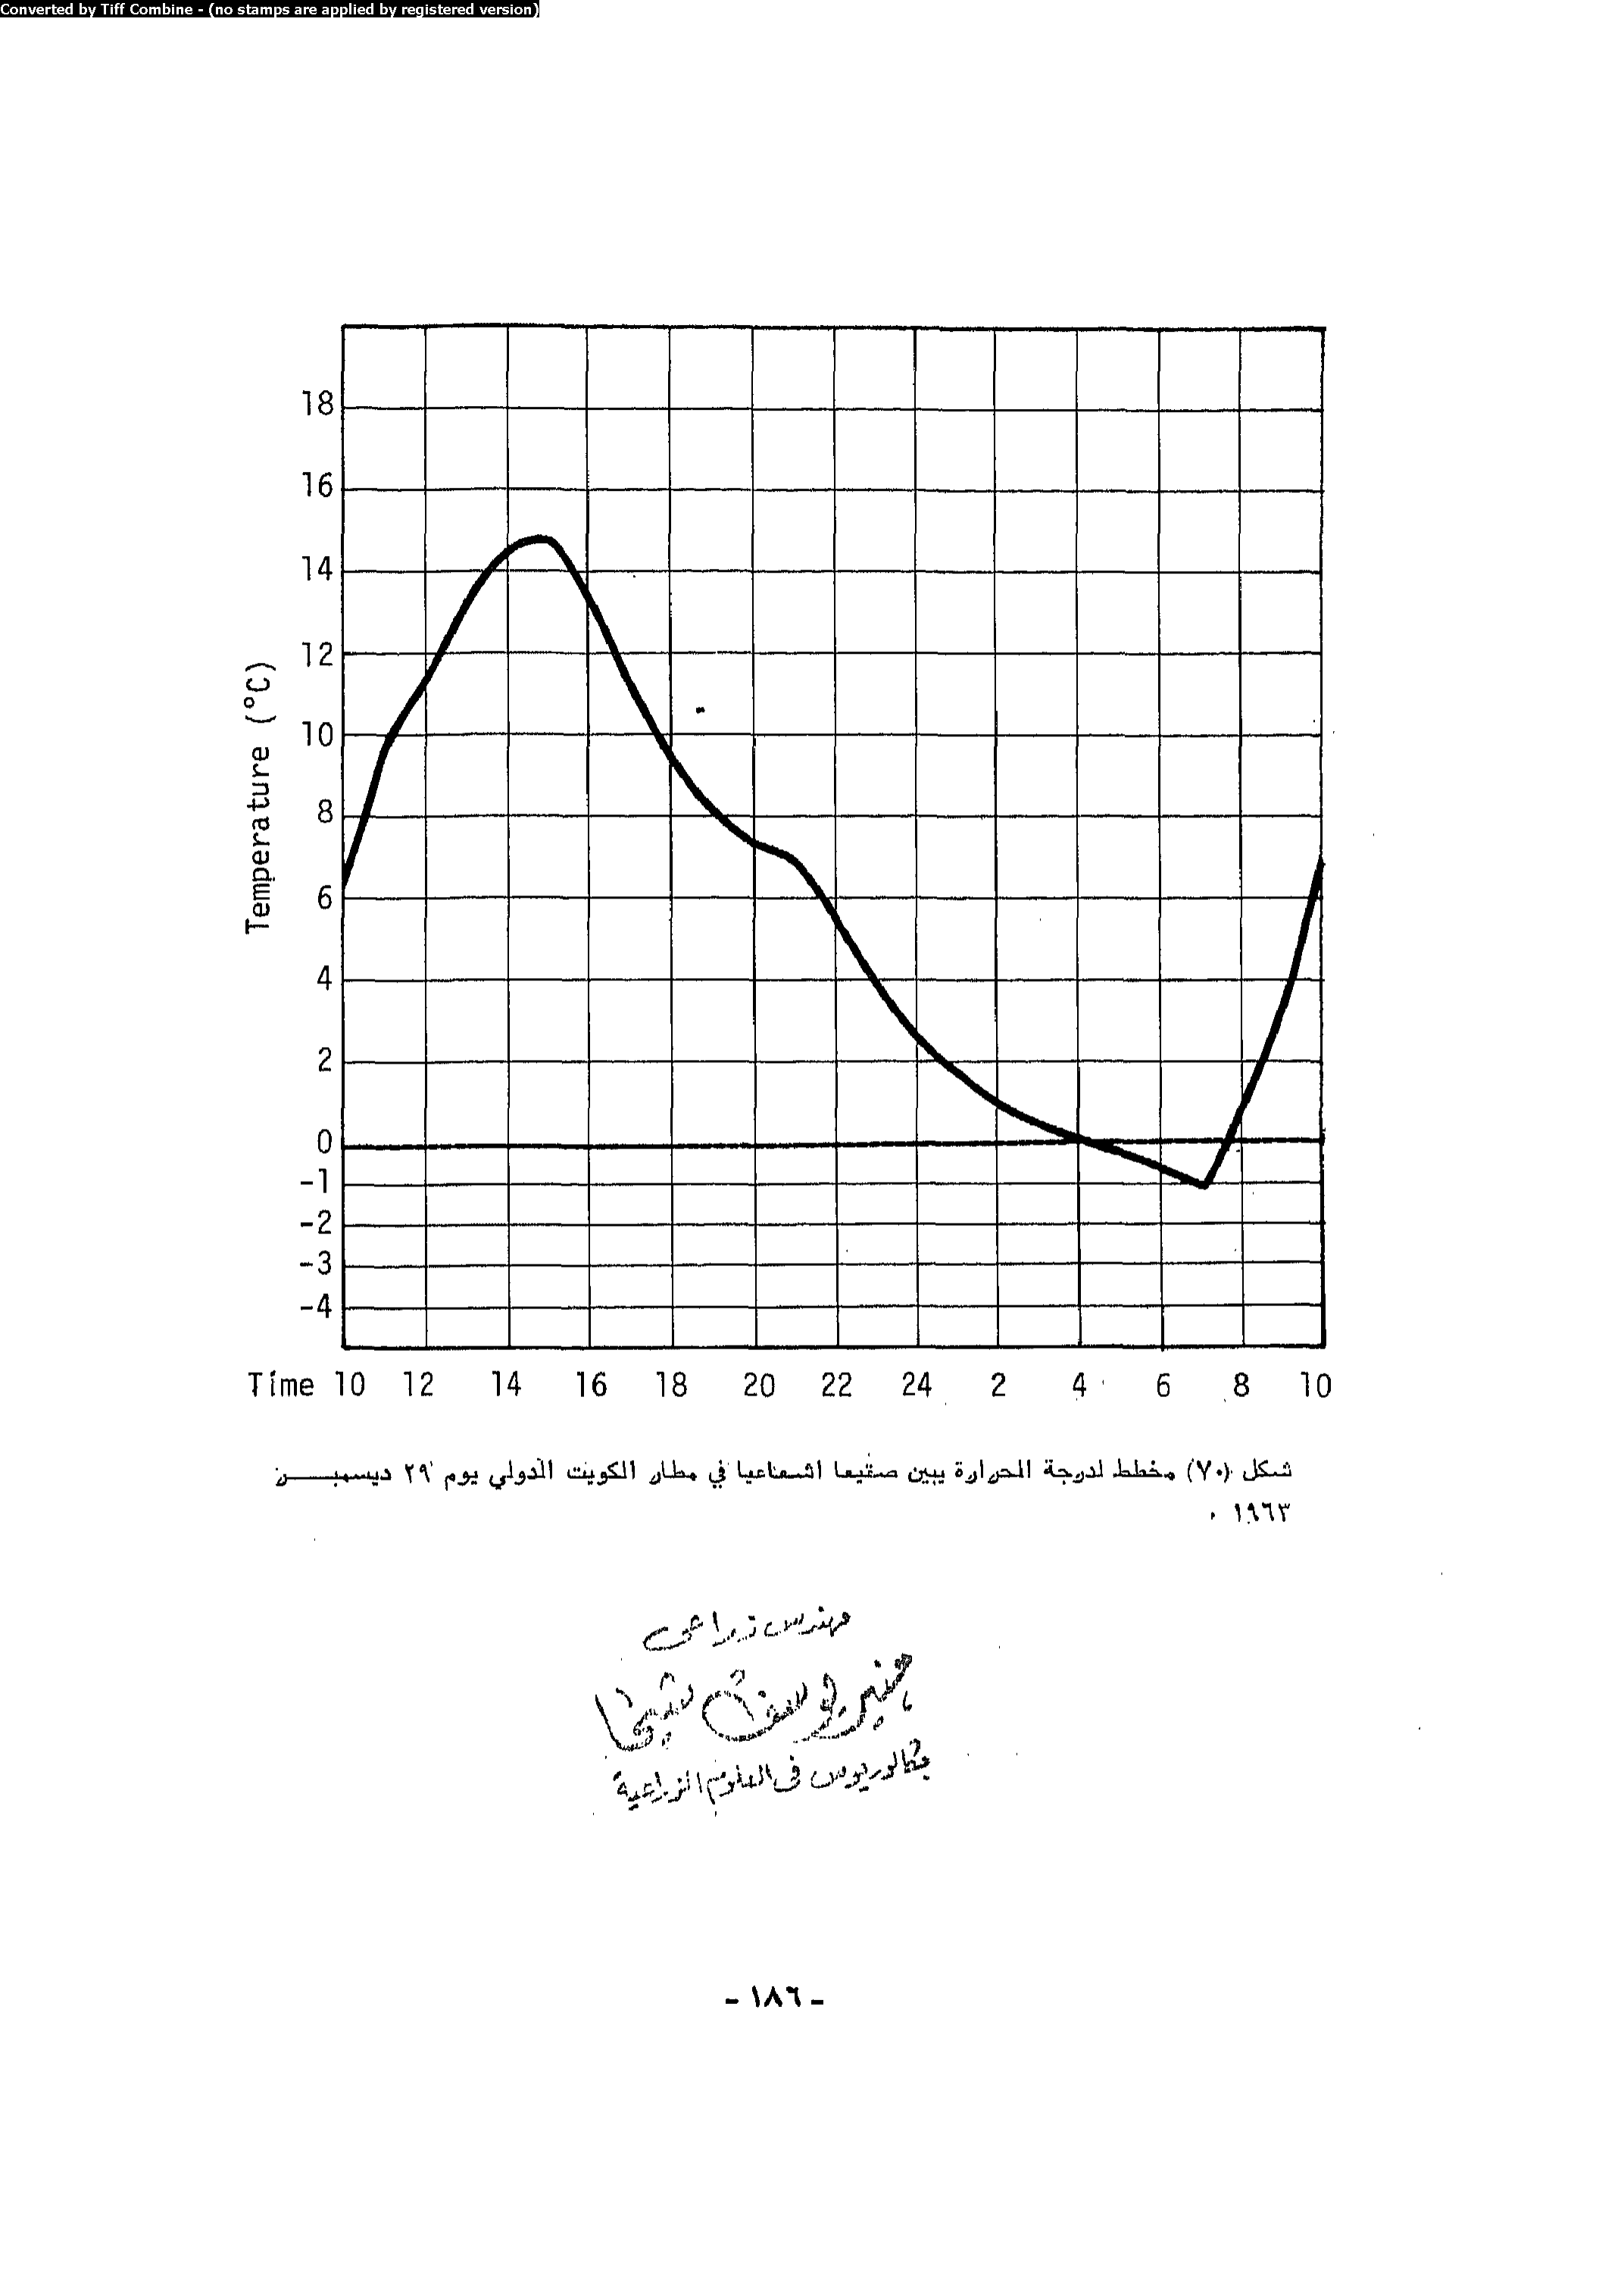 Converted by Tiff Combine - (no stamps are applied by registered version)
18
16
14
12
10
8
6
4
2
0
-1
-2
-3
-4
Temperature (°C)
Time 10 12 14 16 18 20 22 24 2 4 6 8 10
شكل (٧٠) مخطط لدرجة الحرارة يبين صقيعا اشعاعيا في مطار الكويت الدولي يوم ٢٩ ديسمبر
١٩٦٣ .
مهندس زراعى
يوسف
بكالوريوس فى العلوم الزراعية
- ١٨٦ -